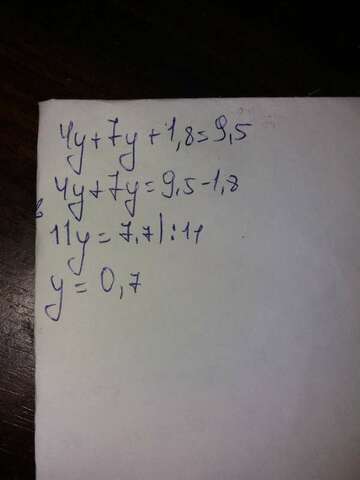 4y+7y+1,8=9,5
4y+7y=9,5-1,8
11y=7,7|:11
y=0,7